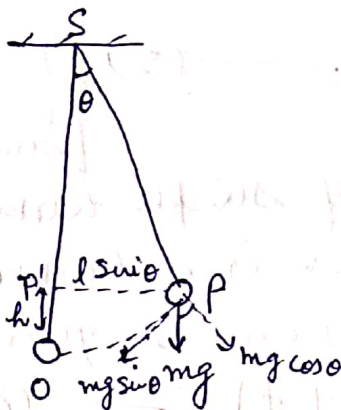 S
θ
P' l sinθ P
h
O mg sinθ mg mg cosθ